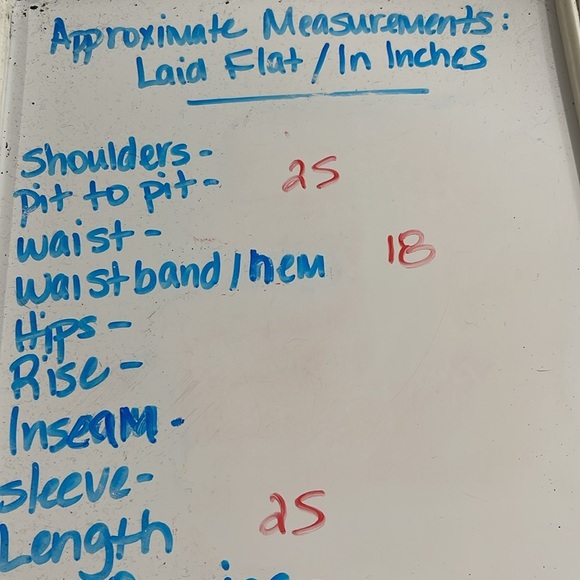 Approximate Measurements:
Laid Flat / In Inches
Shoulders-
pit to pit- 25
waist-
waistband/hem 18
Hips-
Rise-
Inseam-
sleeve-
Length 25